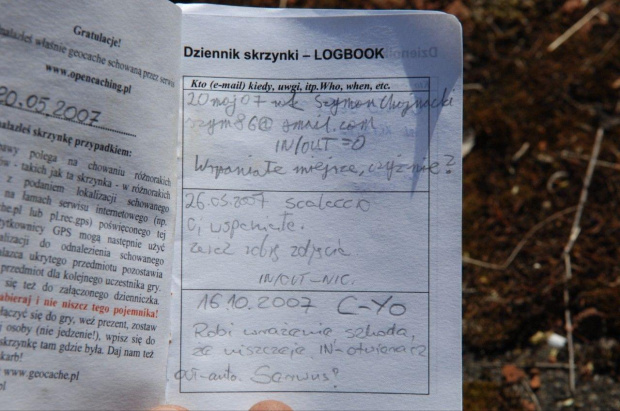 Gratulacje!
nalazłeś właśnie geocache schowaną przez serwis
www.opencaching.pl
20.05.2007
nalazłeś skrzynkę przypadkiem:
awy polega na chowaniu różnorakich
ów - takich jak ta skrzynka - w różnorakich
z podaniem lokalizacji schowanego
na łamach serwisu internetowego (np.
che.pl lub pl.rec.gps) poświęconego tej
żytkownicy GPS mogą następnie użyć
alizacji do odnalezienia schowanego
nalazca ukrytego przedmiotu pozostawia
przedmiot dla kolejnego uczestnika gry.
się też do załączonego dzienniczka.
abieraj i nie niszcz tego pojemnika!
łączyć się do gry, weź prezent, zostaw
osoby (nie jedzenie!), wpisz się do
skrzynkę tam gdzie była. Daj nam też
karb!
www.geocache.pl
pl
Dziennik skrzynki – LOGBOOK
Kto (e-mail) kiedy, uwgi, itp. Who, when, etc.
20 maj 07 Szymon Chojnacki
szym86@gmail.com
IN/OUT = 0
Wspaniałe miejsce, czyż nie?
26.05.2007
wspaniałe.
robię zdjęcia
IN/OUT – NIC.
16.10.2007 C-Yo
Robi wrażenie szkoda,
że niszczeje. IN-otwieracz
out-auto.